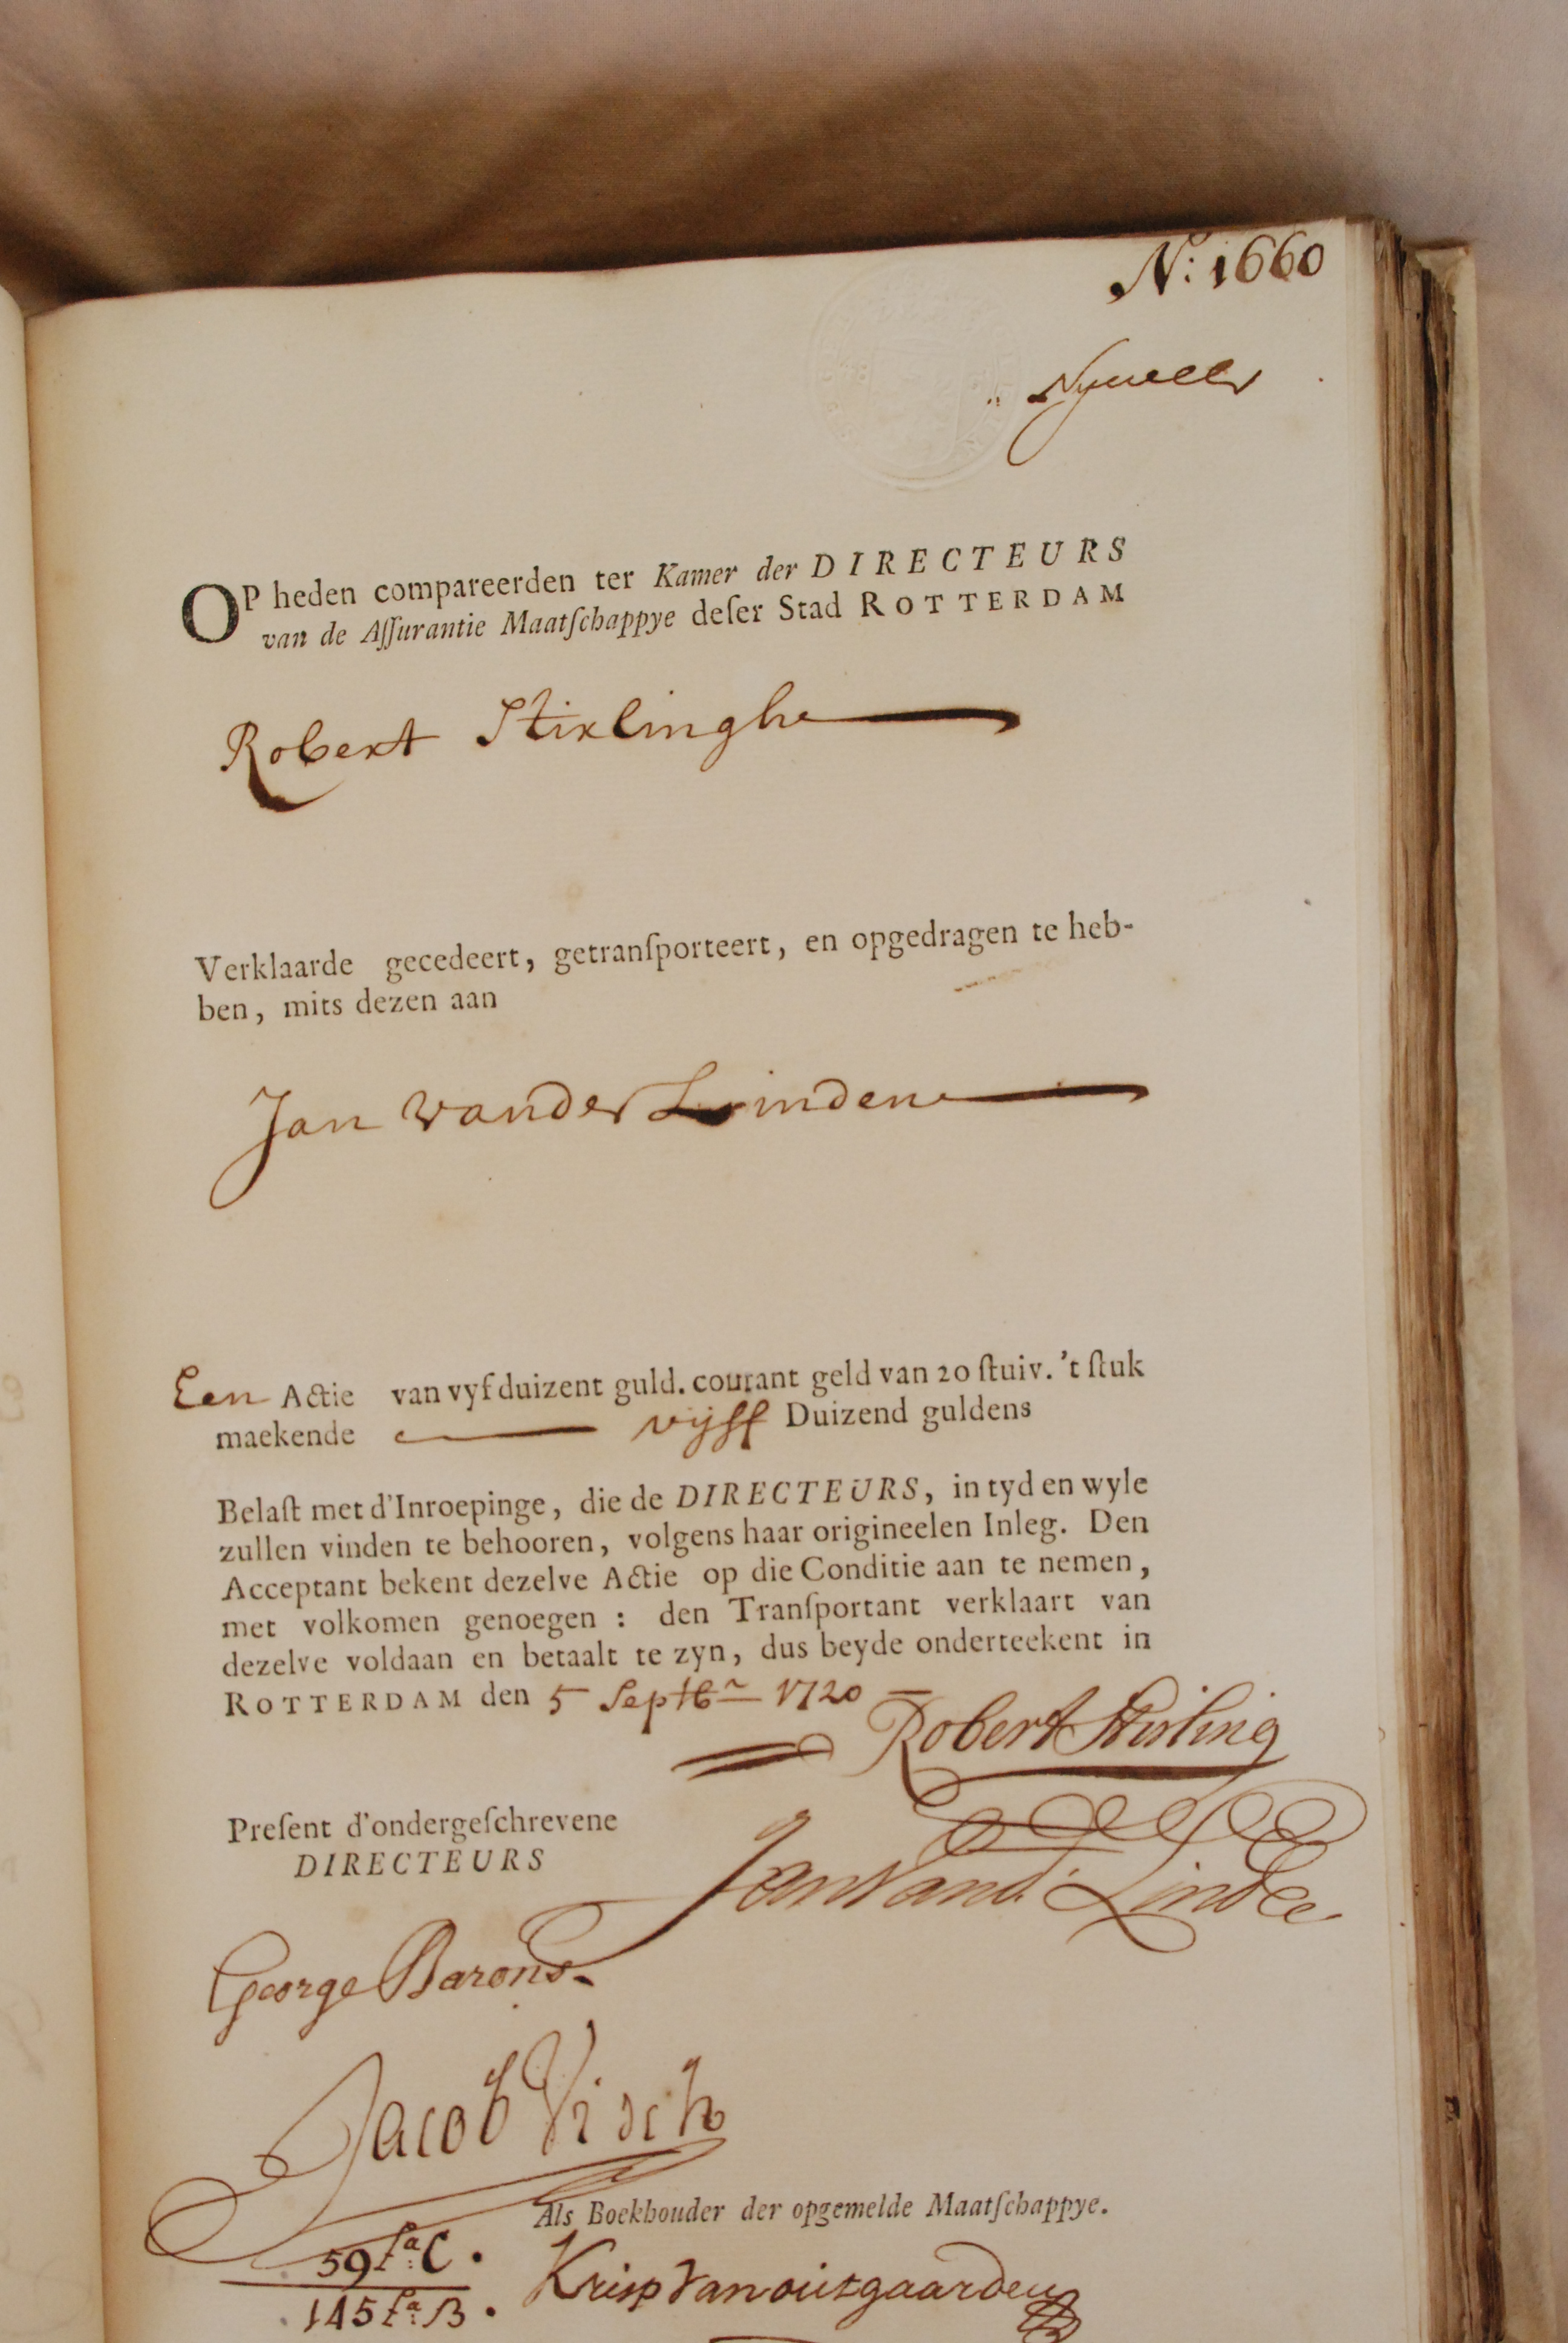 No: 1660
OP heden compareerden ter Kamer der DIRECTEURS
van de Aſſurantie Maatſchappye deſer Stad ROTTERDAM
Robert Stirlingh
Verklaarde gecedeert, getranſporteert, en opgedragen te heb-
ben, mits dezen aan
Jan vander Linden
Een Actie van vyf duizent guld. courant geld van 20 ſtuiv. 't ſtuk
maekende vijff Duizend guldens
Belaſt met d'Inroepinge, die de DIRECTEURS, in tyd en wyle
zullen vinden te behooren, volgens haar origineelen Inleg. Den
Acceptant bekent dezelve Actie op die Conditie aan te nemen,
met volkomen genoegen : den Tranſportant verklaart van
dezelve voldaan en betaalt te zyn, dus beyde onderteekent in
ROTTERDAM den 5 Septbr 1720
Robert Stirling
Preſent d'ondergeſchrevene
DIRECTEURS
Jan Vand. Linden
George Barons
Jacob Visch
Als Boekhouder der opgemelde Maatſchappye.
59 fa: C.
145 fa: B.
Krisp Van outgaarden